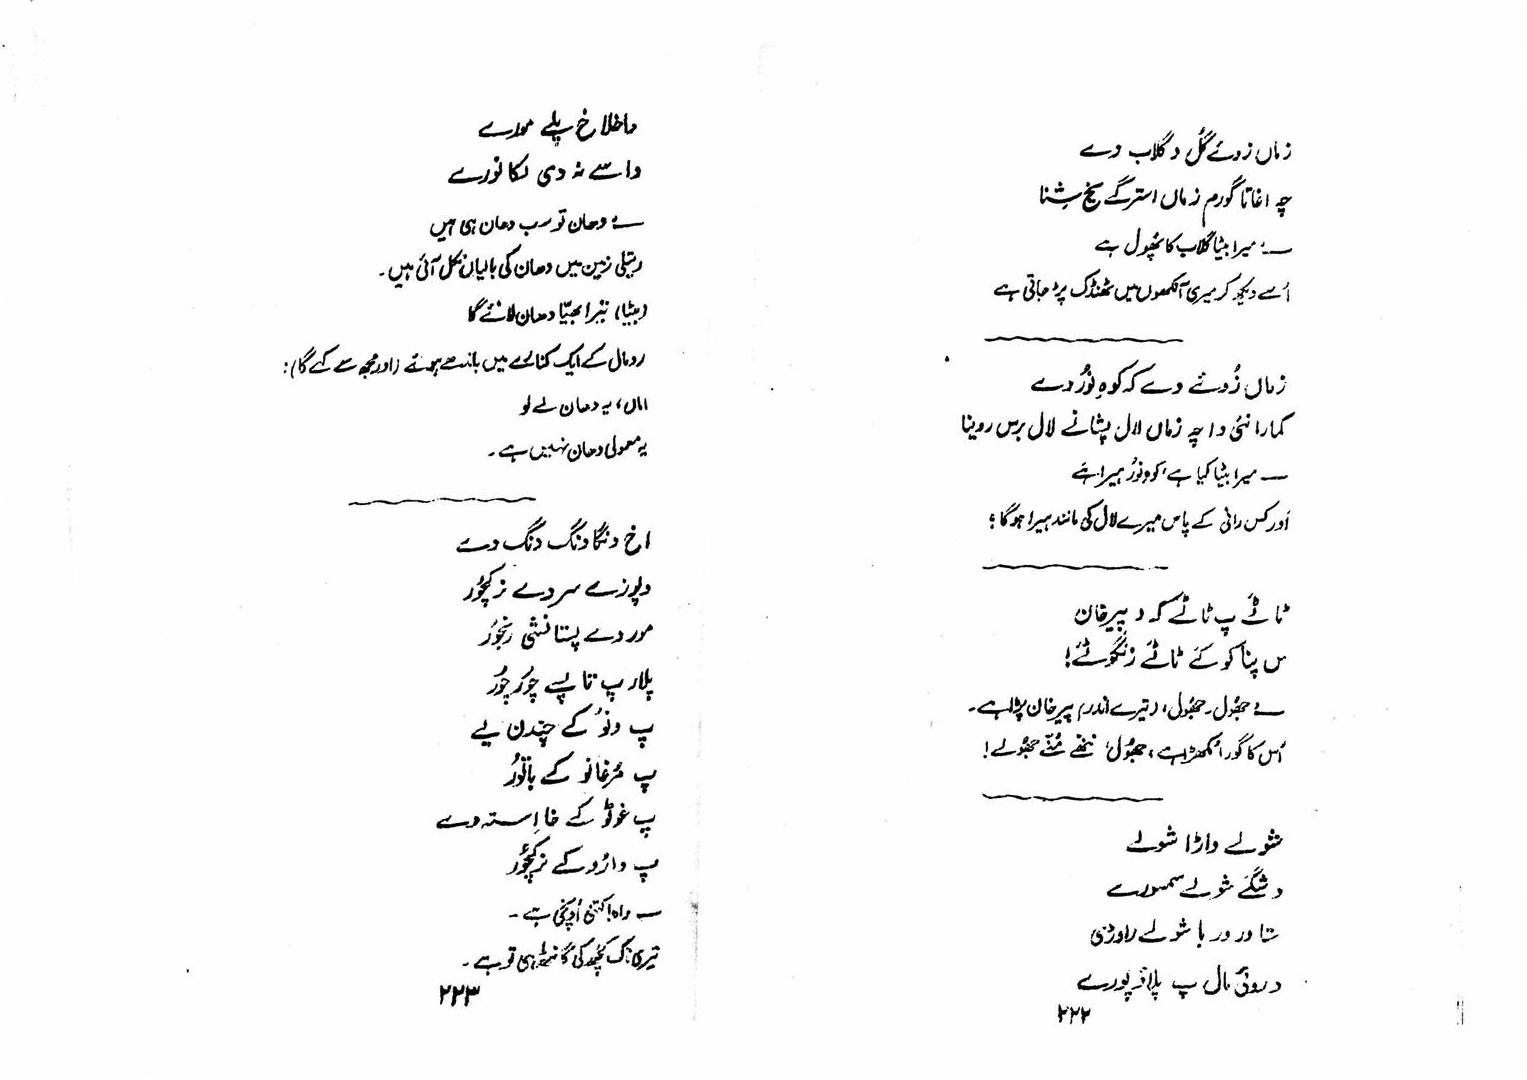 زماں زوئے گُل د گلاب دے
چہ اغاتا گورم زماں استرگے یخ شِنا
— : میرا بیٹا گلاب کا پھُول ہے
اُسے دیکھ کر میری آنکھوں میں ٹھنڈک پڑ جاتی ہے
زماں زُوئے دے کہ کوہِ نُور دے
کمارا نئی دا چہ زماں لال پشانے لال برس روینا
— میرا بیٹا کیا ہے، کوہِ نُور ہیرا ہے
اَور کس رانی کے پاس میرے لال کی مانند ہیرا ہوگا ؟
ٹائے پ ٹائے کہ د پیرخان
س پناکوکے ٹائے زنگوئے!
— جھُول۔ جھُول، (تیرے اندر) پیرخان پڑا ہے۔
اُس کا گورا مُکھڑا ہے، جھُول، ننھے مُنّے جھُولے!
شولے داڑا شولے
د شگے شولے سمسورے
ستا ورور با شولے راوڑی
د رومال پ پلاؤ پورے
۲۲۲
داخلاخ پلے مورے
داسے نہ دی لکا نورے
— دھان تو سب دھان ہی ہیں
ریتلی زمین میں دھان کی بالیاں نکل آئی ہیں۔
(بیٹا) تیرا بھیّا دھان لائے گا
رومال کے ایک کنارے میں باندھے ہوئے (اور مجھ سے کہے گا):
اماں، یہ دھان لے لو
یہ معمولی دھان نہیں ہے۔
اخ دنگا دنگ دنگ دے
دپوزے سر دے نرکچُور
مور دے پستا نشی رنجُور
پلار پ تا پسے چُور چُور
پ ونو کے چندن یے
پ مُرغانو کے باتُور
پ غوڈ کے خااستہ دے
پ دارُو کے نرکچُور
— واہ! کتنی اُونچی ہے۔
تیری ناک کچُور کی گانٹھ ہی تو ہے۔
۲۲۳